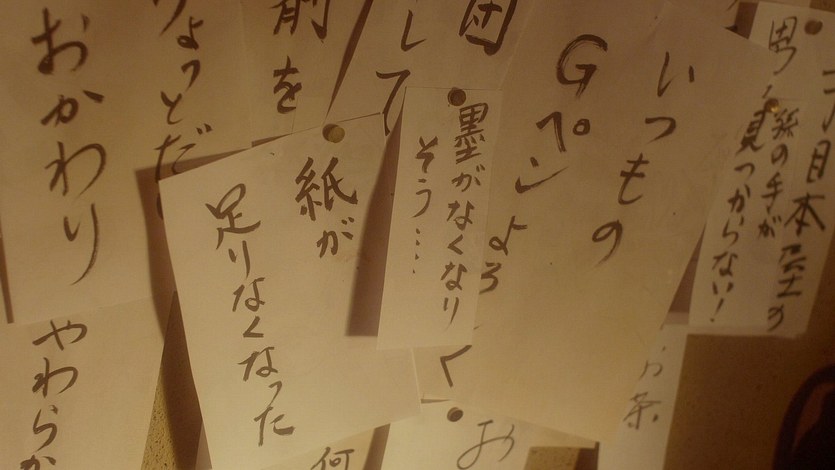 丁目本屋の
孫の手が
見つからない!
いつもの
Gペンよろしく
墨がなくなり
そう……
団
して
紙が
足りなくなった
前を
ょっとだ
おかわり
やわらか
お茶
お
何